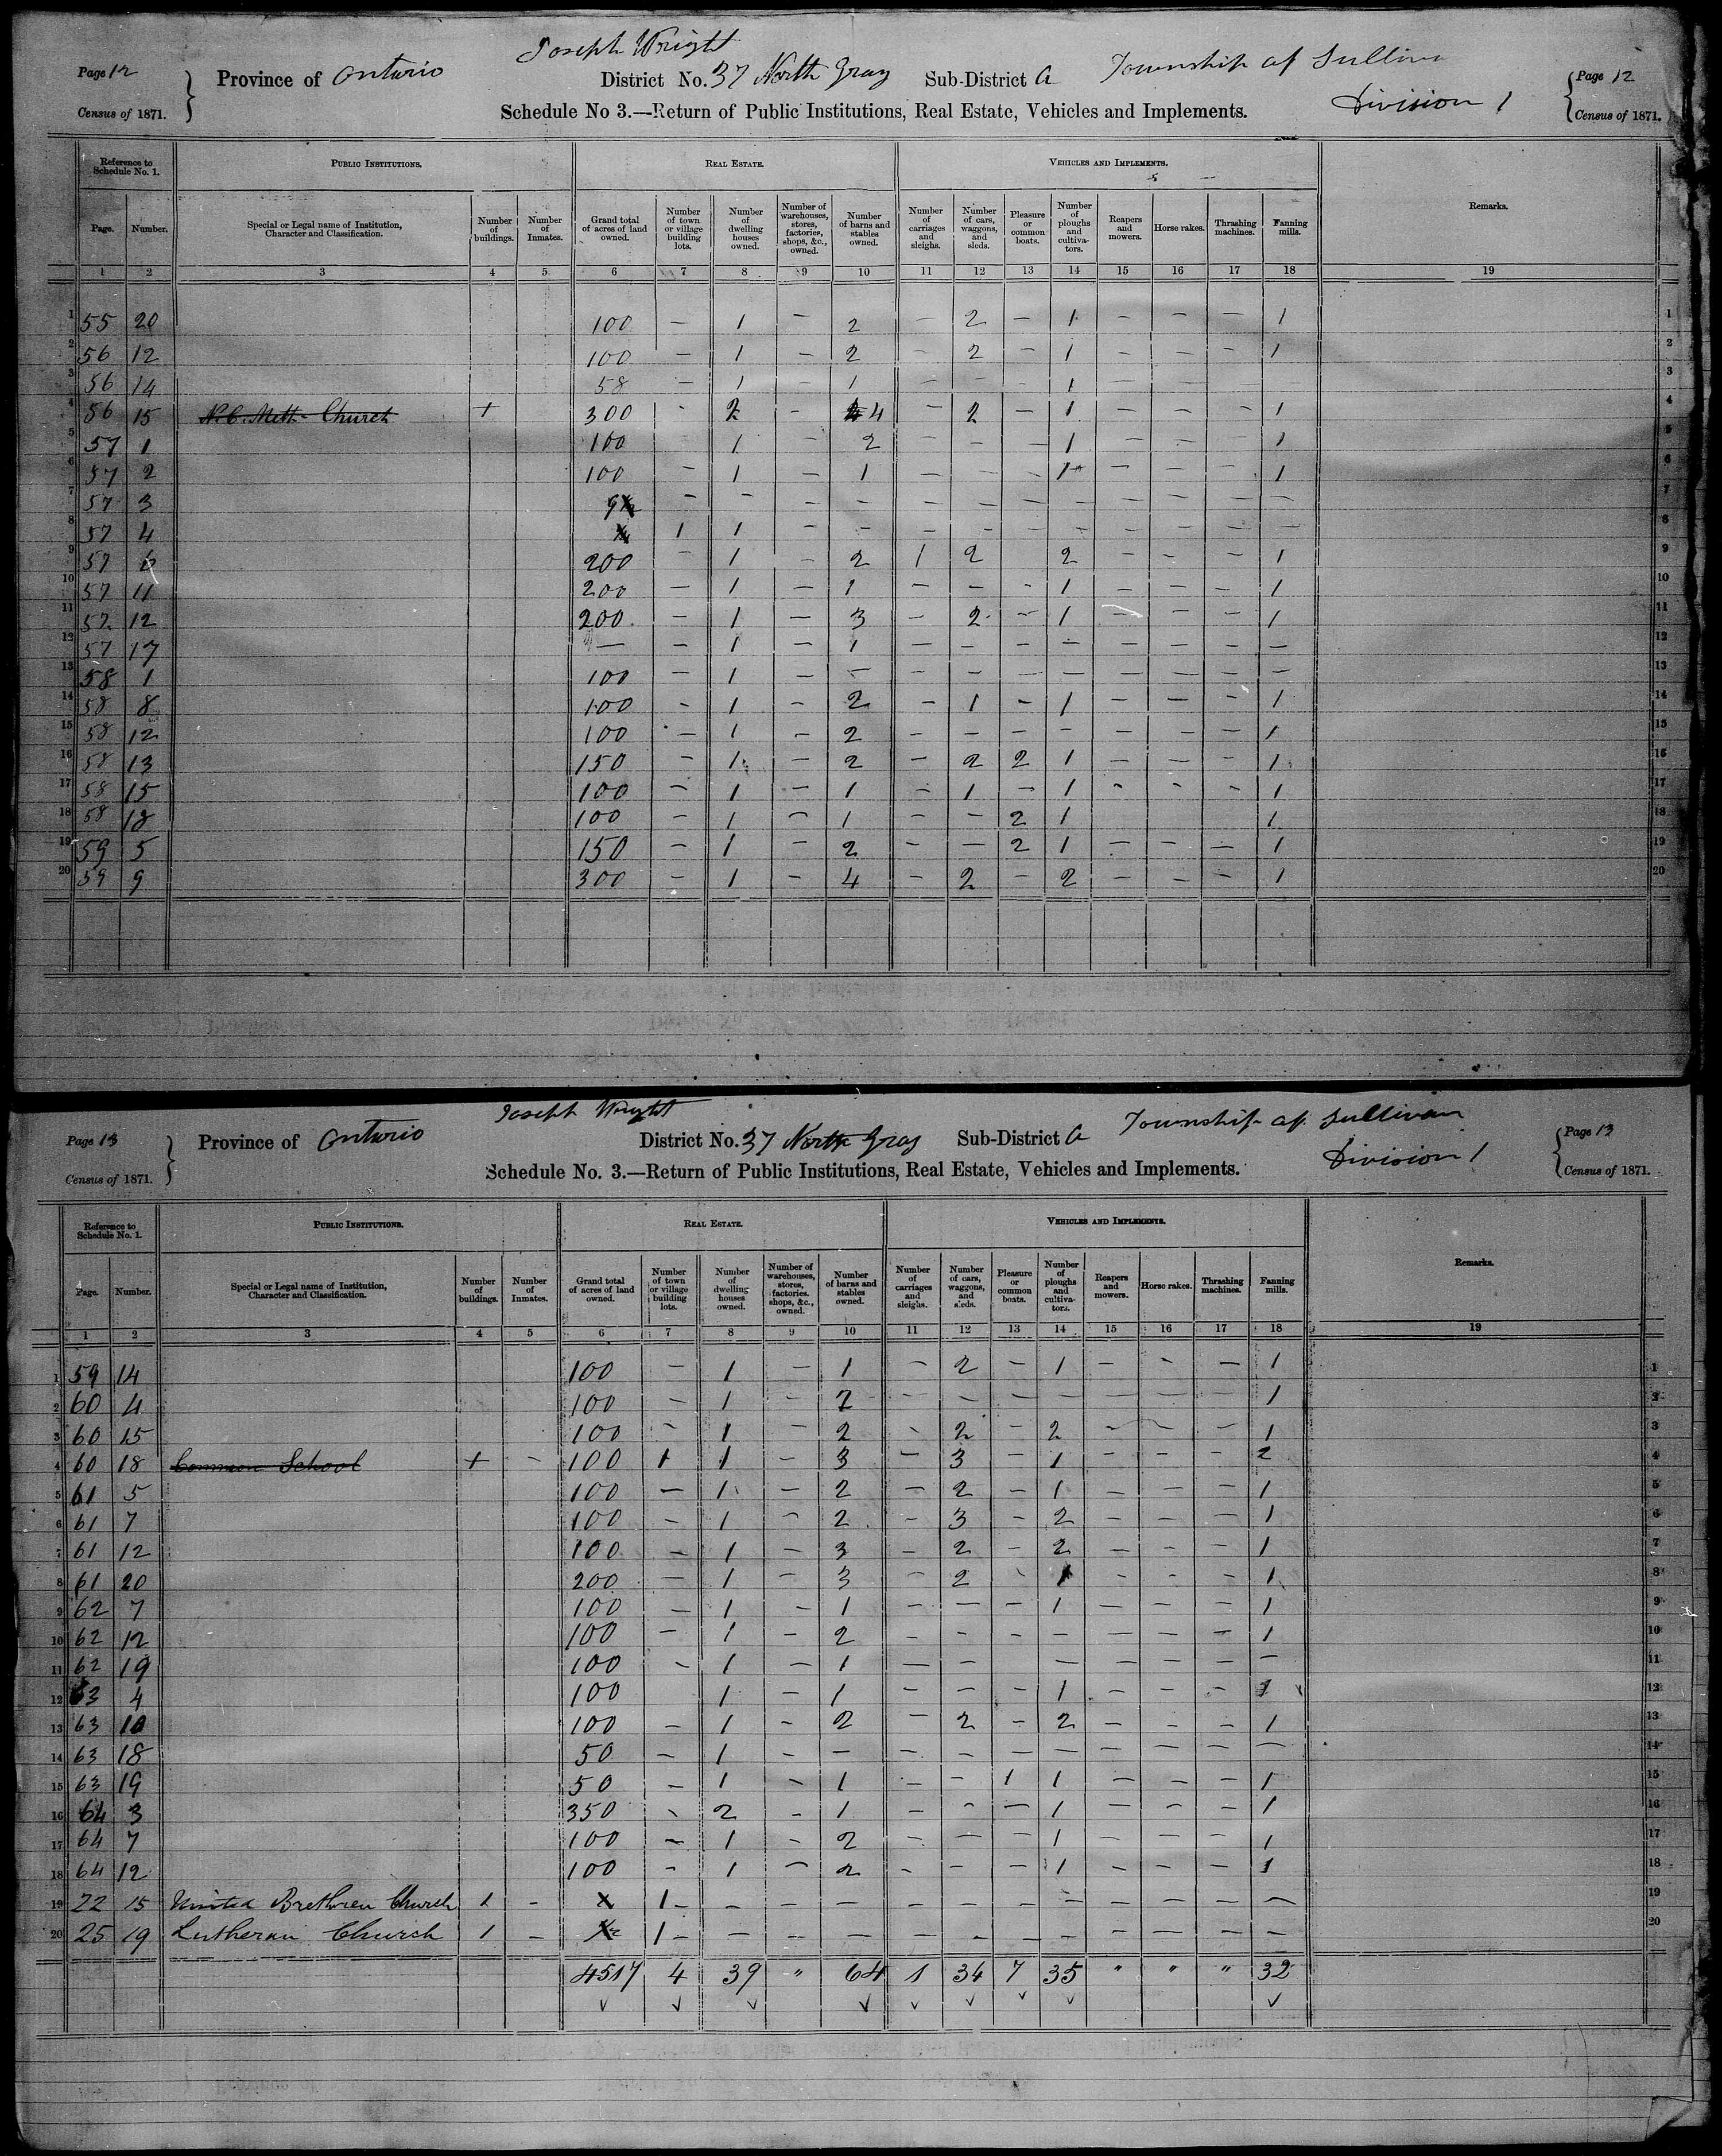 Joseph Wright
Page 12 Province of Ontario District No. 37 North Gray Sub-District a Township of Sullivan Page 12
Census of 1871. Schedule No 3.—Return of Public Institutions, Real Estate, Vehicles and Implements. Division 1 Census of 1871.
Reference to Schedule No. 1. PUBLIC INSTITUTIONS. REAL ESTATE. VEHICLES AND IMPLEMENTS. Remarks.
Page. Number. Special or Legal name of Institution, Character and Classification. Number of buildings. Number of Inmates. Grand total of acres of land owned. Number of town or village building lots. Number of dwelling houses owned. Number of warehouses, stores, factories, shops, &c., owned. Number of barns and stables owned. Number of carriages and sleighs. Number of cars, waggons, and sleds. Pleasure or common boats. Number of ploughs and cultivators. Reapers and mowers. Horse rakes. Thrashing machines. Fanning mills.
1 2 3 4 5 6 7 8 9 10 11 12 13 14 15 16 17 18 19
1 55 20 100 — 1 — 2 — 2 — 1 — — — 1 1
2 56 12 100 — 1 — 2 — 2 — 1 — — — 1 2
3 56 14 58 — 1 — 1 — — 1 — — — 3
4 56 15 N.C. Meth. Church 1 300 - 2 - 4 — 2 — 1 — — — 1 4
5 57 1 100 1 2 — — — 1 — — — 1 5
6 57 2 100 — 1 — 1 — — 1 — — — 1 6
7 57 3 9 — — — — — — — — — — — — 7
8 57 4 1 1 — — — — — — — — — — 8
9 57 6 200 — 1 — 2 1 2 2 — — — 1 9
10 57 11 200 — 1 — 1 — — - 1 — — — 1 10
11 57 12 200 — 1 — 3 — 2 — 1 — — — 1 11
12 57 17 — — 1 — 1 — — — — — — — — 12
13 58 1 100 — 1 — — — — — — — — — — 13
14 58 8 100 — 1 — 2 — 1 — 1 — — — 1 14
15 58 12 100 — 1 — 2 — — — — — — — 1 15
16 58 13 150 — 1 — 2 — 2 2 1 — — — 1 16
17 58 15 100 — 1 — 1 — 1 — 1 - - - 1 17
18 58 18 100 — 1 — 1 — — 2 1 1 18
19 59 5 150 — 1 — 2 — — 2 1 — — — 1 19
20 59 9 300 — 1 — 4 — 2 — 2 — — — 1 20
Joseph Wright
Page 13 Province of Ontario District No. 37 North Gray Sub-District a Township of Sullivan Page 13
Census of 1871. Schedule No. 3.—Return of Public Institutions, Real Estate, Vehicles and Implements. Division 1 Census of 1871.
Reference to Schedule No. 1. PUBLIC INSTITUTIONS. REAL ESTATE. VEHICLES AND IMPLEMENTS. Remarks.
Page. Number. Special or Legal name of Institution, Character and Classification. Number of buildings. Number of Inmates. Grand total of acres of land owned. Number of town or village building lots. Number of dwelling houses owned. Number of warehouses, stores, factories. shops, &c., owned. Number of barns and stables owned. Number of carriages and sleighs. Number of cars, waggons, and sleds. Pleasure or common boats. Number of ploughs and cultivators. Reapers and mowers. Horse rakes. Thrashing machines. Fanning mills.
1 2 3 4 5 6 7 8 9 10 11 12 13 14 15 16 17 18 19
1 59 14 100 — 1 — 1 — 2 — 1 — - — 1 1
2 60 4 100 — 1 — 2 — — — — — — — 1 2
3 60 15 100 — 1 — 2 - 2 — 2 — — — 1 3
4 60 18 Common School 1 — 100 1 1 — 3 — 3 — 1 — — — 2 4
5 61 5 100 — 1 — 2 — 2 — 1 — — — 1 5
6 61 7 100 — 1 — 2 — 3 — 2 — — — 1 6
7 61 12 100 — 1 — 3 — 2 — 2 — — — 1 7
8 61 20 200 — 1 — 3 — 2 - 1 - - — 1 8
9 62 7 100 — 1 — 1 — — — 1 — — — 1 9
10 62 12 100 — 1 — 2 — — — — — — — 1 10
11 62 19 100 - 1 — 1 — — — — — — — 11
12 63 4 100 1 — 1 — — — 1 — — — 1 12
13 63 10 100 — 1 — 2 — 2 — 2 — — — 1 13
14 63 18 50 — 1 — — — — — — — — — — 14
15 63 19 50 — 1 — 1 — — 1 1 — — — 1 15
16 64 3 350 - 2 — 1 — - — 1 — — — 1 16
17 64 7 100 — 1 — 2 — — — 1 — — — 1 17
18 64 12 100 — 1 — 2 — — — 1 — — — 1 18
19 22 15 United Brethren Church 1 — 1 — — — — — — — — — — — — 19
20 25 19 Lutheran Church 1 — 1 — — — — — — — — — — — — 20
4517 4 39 " 64 1 34 7 35 " " " 32